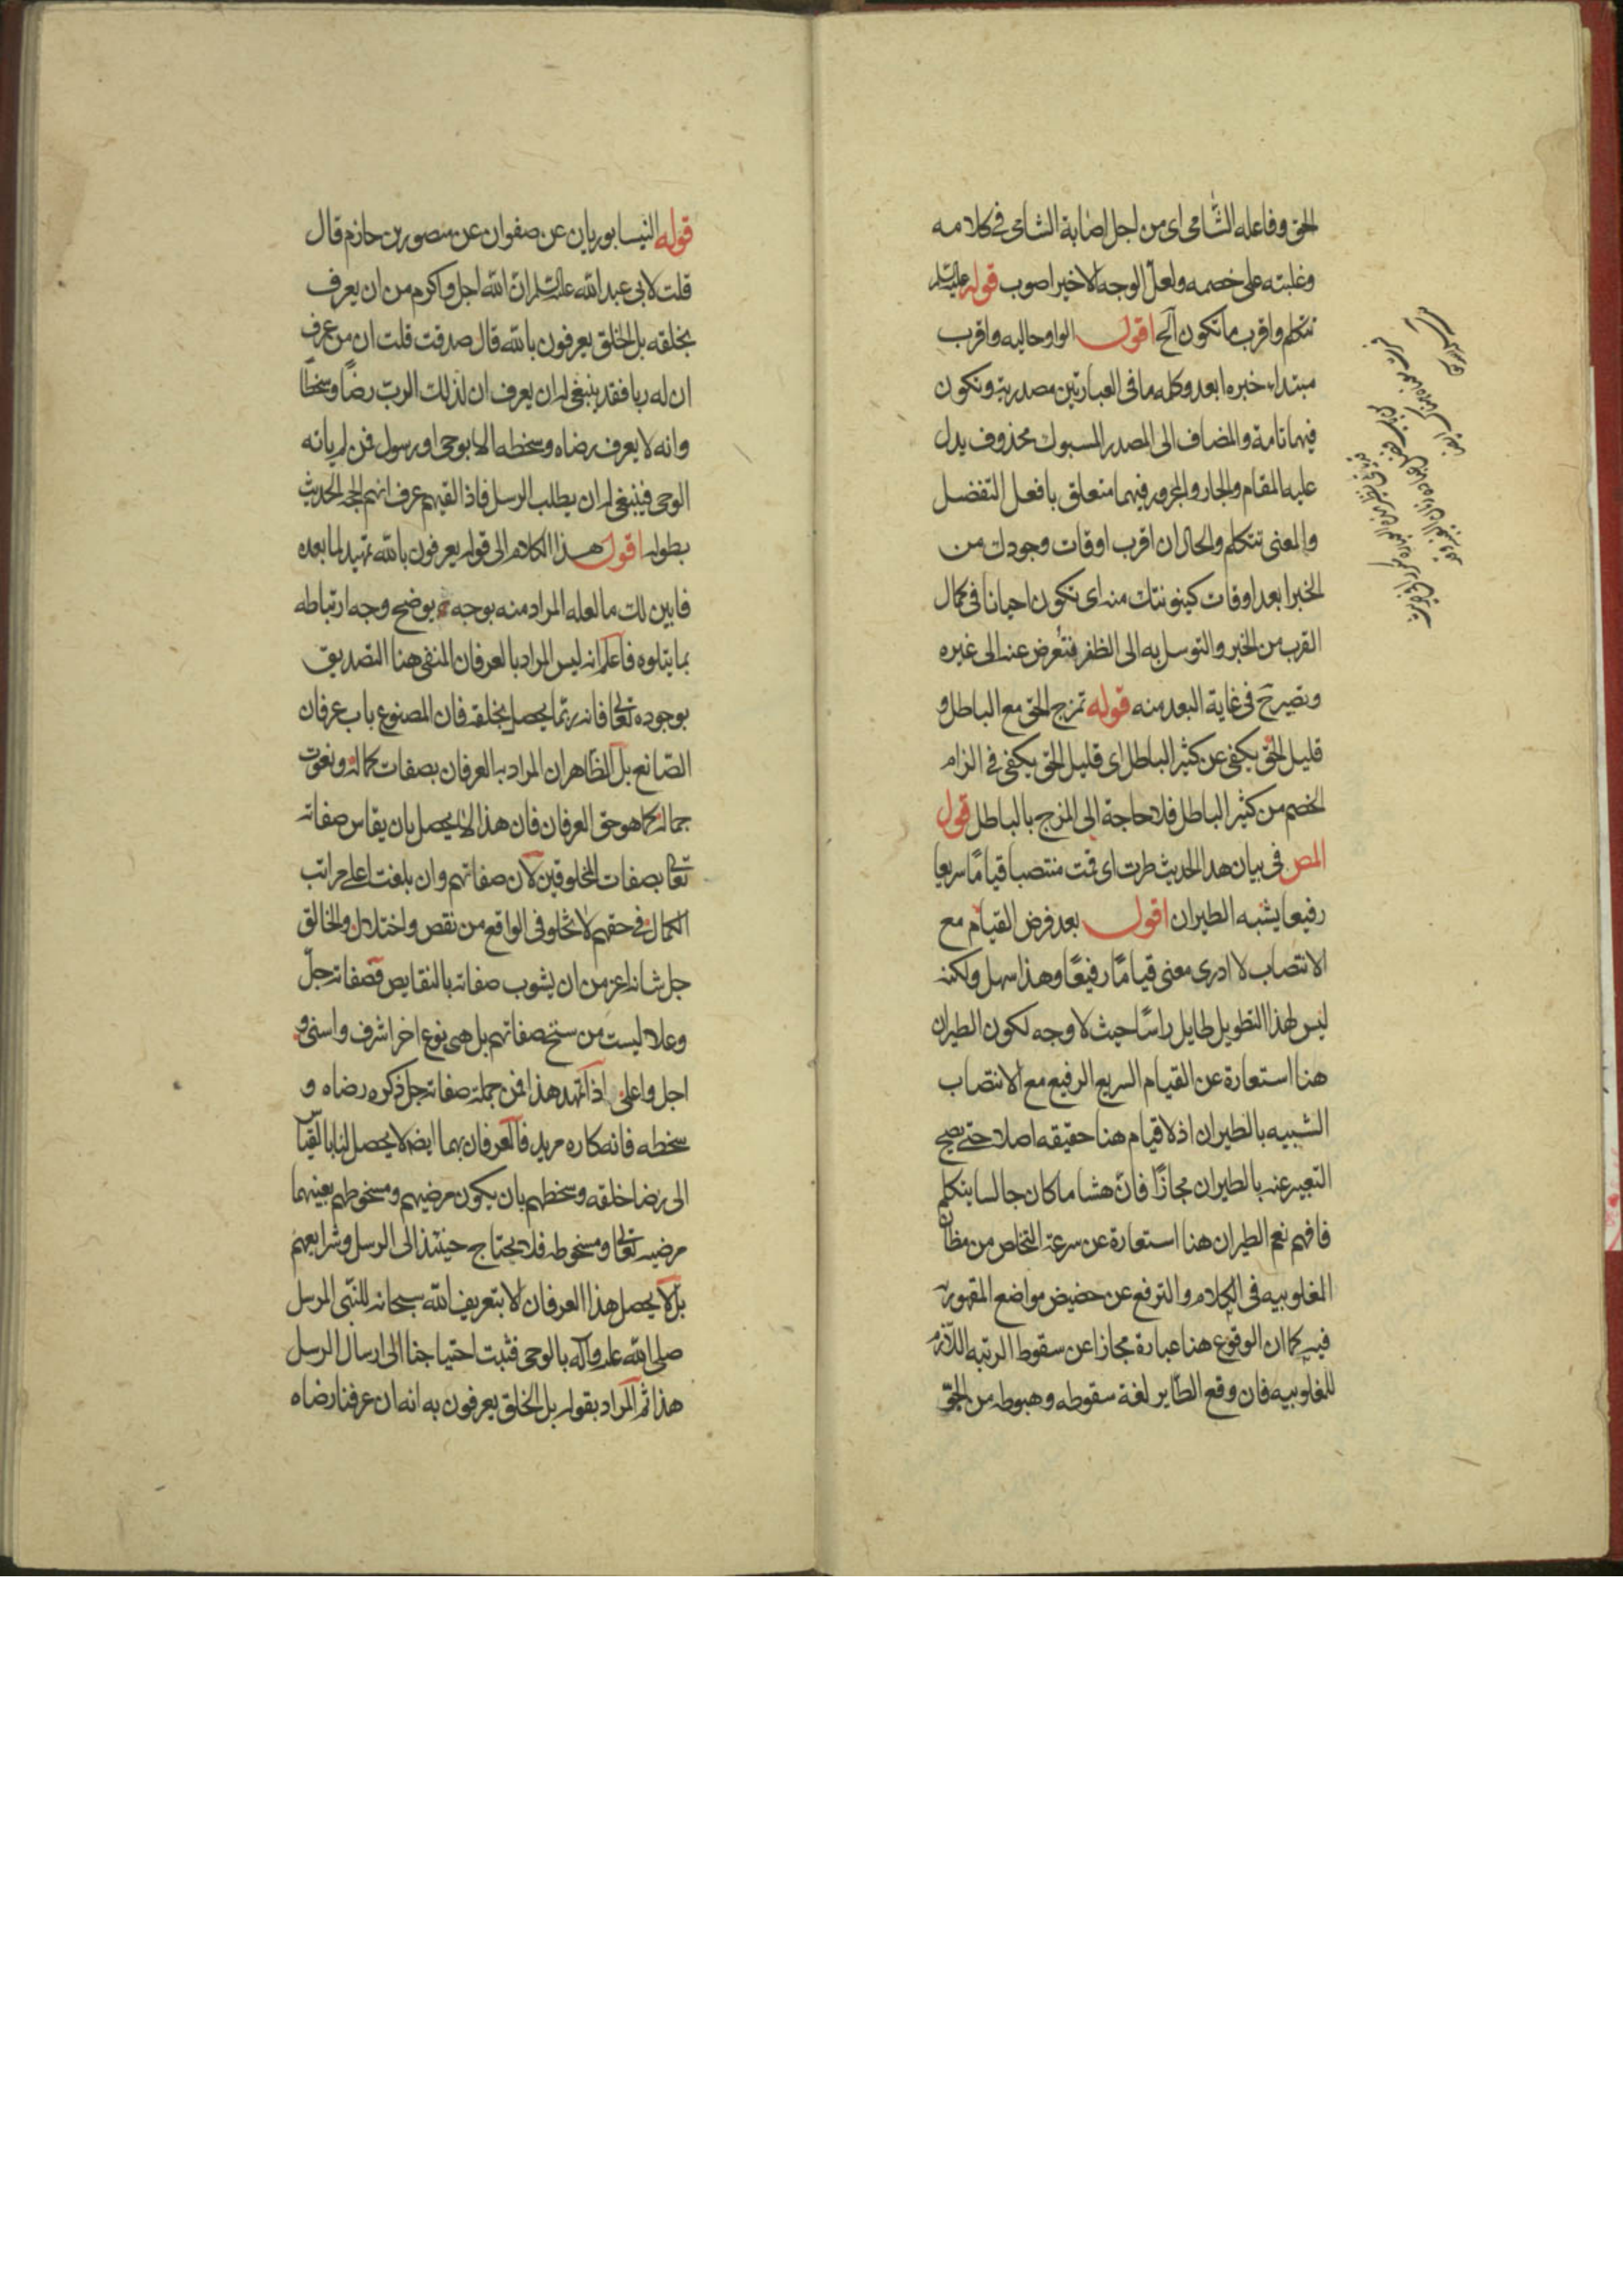 الحق وفاعله الشامى اى من اجل اصابة الشامى فى كلامه
وغلبته على خصمه ولعل الوجه الاخير اصوب قوله عليه السلم
تتكلم واقرب ما تكون آلخ اقول الواو حاليه واقرب
مبتداء خبره ابعد وكلمه ما فى العبارتين مصدرية وتكون
فيهما تامة والمضاف الى المصدر المسبوك محذوف يدل
عليه المقام والجار والمجرور فيهما متعلق بافعل التفضل
والمعنى تتكلم والحال ان اقرب اوقات وجودك من
الخبر ابعد اوقات كينونتك منه اى تكون احيانا فى كمال
القرب من الخبر والتوسل به الى الظفر فتعرض عنه الى غيره
وتصيرح فى غاية البعد منه قوله تمزج الحق مع الباطل و
قليل الحق يكفى عن كثير الباطل اى قليل الحق يكفى فى الزام
الخصم من كثير الباطل فلا حاجة الى المزج بالباطل قول
المص فى بيان هدا الحديث طرت اى قمت منتصبا قيامًا سريعا
رفيعا يشبه الطيران اقول بعد فرض القيام مع
الانتصاب لا ادرى معنى قيامًا رفيعًا وهذا سهل ولكنه
ليس لهذا التطويل طايل راسًا حيث لا وجه لكون الطيران
هنا استعارة عن القيام السريع الرفيع مع الانتصاب
الشبيه بالطيران اذ لا قيام هنا حقيقه اصلا حتى يصح
التعبير عنه بالطيران مجازًا فانّ هشاما كان جالسا يتكلم
فافهم نعم الطيران هنا استعارة عن سرعة التخلص من مظان
المغلوبيه فى الكلام والترفع عن حضيض مواضع المقهورية
فيه كما ان الوقوع هنا عبارة مجازا عن سقوط الرتبه اللازم
للمغلوبيه فان وقع الطاير لغة سقوطه وهبوطه من الجوّ
قوله النيسابوريان عن صفوان عن منصور بن حازم قال
قلت لابى عبد الله عليه السلم ان الله اجل واكرم من ان يعرف
بخلقه بل الخلق يعرفون بالله قال صدقت قلت ان من عرف
ان له ربا فقد ينبغى له ان يعرف ان لذلك الرب رضًا وسخطًا
وانه لا يعرف رضاه وسخطه الا بوحى او رسول فمن لم ياته
الوحى فينبغى له ان يطلب الرسل فاذا لقيهم عرف انهم الحجه الحديث
بطوله اقول هذا الكلام الى قوله يعرفون بالله تمهيد لما بعده
فابين لك ما لعله المراد منه بوجه يوضح وجه ارتباطه
بما يتلوه فاعلم انه ليس المراد بالعرفان المنفى هنا التصديق
بوجوده تعالى فانه ربما يحصل بخلقه فان المصنوع باب عرفان
الصانع بل الظاهر ان المراد به العرفان بصفات كماله ونعوت
جماله كما هو حق العرفان فان هذا لا يحصل بان يقاس صفاته
تعالى بصفات المخلوقين لان صفاتهم وان بلغت اعلى مراتب
الكمال فى حقهم لا تخلو فى الواقع من نقص واختلال والخالق
جل شانه اعز من ان يشوب صفاته بالنقايص فصفاته جلّ
وعلا ليست من سنخ صفاتهم بل هى نوع اخر اشرف واسنى و
اجل واعلى اذا تمهد هذا فمن جملة صفاته جل ذكره رضاه و
سخطه فانه كاره مريد فالعرفان بهما ايضا لا يحصل لنا بالقياس
الى رضا خلقه وسخطهم بان يكون مرضيهم ومسخوطهم بعينهما
مرضيه تعالى ومسخوطه فلا يحتاج حينئذ الى الرسل وشرايعهم
بل لا يحصل هذا العرفان الا بتعريف الله سبحانه للنبى المرسل
صلى الله عليه وآله بالوحى فثبت احتياجنا الى ارسال الرسل
هذا ثم المراد بقوله بل الخلق يعرفون به انه ان عرفنا رضاه